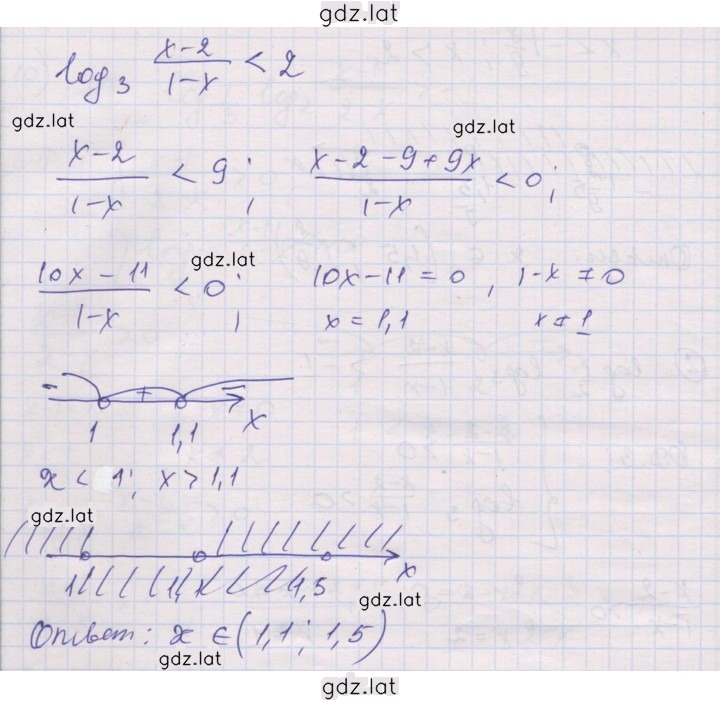 gdz.lat
log₃ (x-2)/(1-x) < 2
gdz.lat
gdz.lat
(x-2)/(1-x) < 9 ; (x-2-9+9x)/(1-x) < 0;
gdz.lat
(10x-11)/(1-x) < 0 ; 10x-11=0, 1-x≠0
x=1,1 x≠1
- + - x
1 1,1
x < 1; x > 1,1
gdz.lat
x
1 1,1 1,5
gdz.lat
Ответ: x ∈ (1,1; 1,5)
gdz.lat
gdz.lat